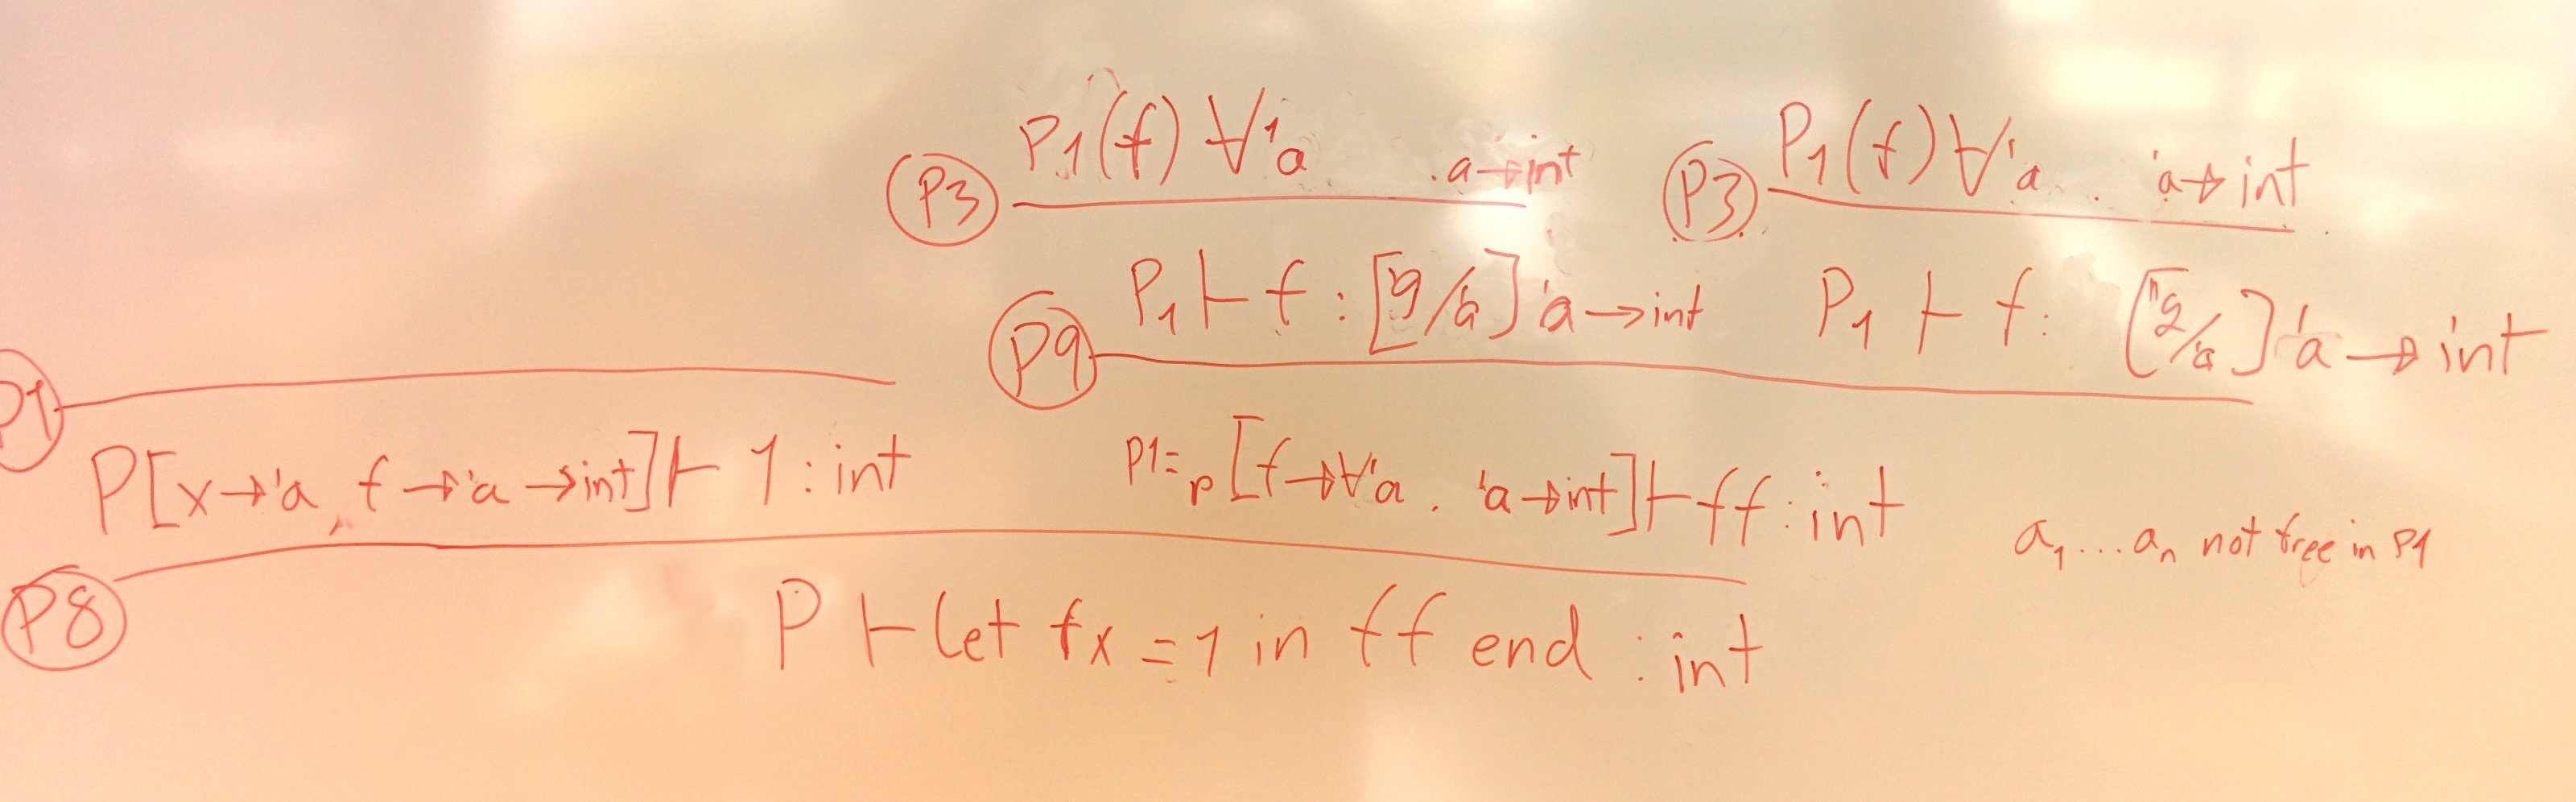 P3 P1(f) ∀'a . a→int P3 P1(f) ∀'a . 'a→int
P9 P1 ⊢ f : ['g/'a] 'a→int P1 ⊢ f : ['g/'a] 'a→int
P1
P[x→'a, f→'a→int] ⊢ 1 : int P1=P[f→∀'a . 'a→int] ⊢ f f : int
a1...an not free in P1
P8
P ⊢ let f x = 1 in f f end : int